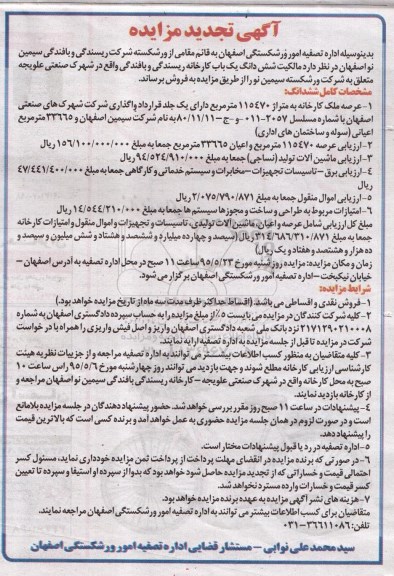 آگهی تجدید مزایده
بدینوسیله اداره تصفیه امور ورشکستگی اصفهان به قائم مقامی از ورشکسته شرکت ریسندگی و بافندگی سیمین
نو اصفهان در نظر دارد مالکیت شش دانگ یک باب کارخانه ریسندگی و بافندگی واقع در شهرک صنعتی علویجه
متعلق به شرکت ورشکسته سیمین نو را از طریق مزایده به فروش برساند.
مشخصات کامل ششدانگ:
۱- عرصه ملک کارخانه به متراژ ۱۱۵۴۷۰ مترمربع دارای یک جلد قرارداد واگذاری شرکت شهرک های صنعتی
اصفهان با شماره مسلسل ۲۰۵۷-۰۱۱-و-ج-۸۰/۱۱/۱۱ به نام شرکت سیمین اصفهان و ۳۳۶۶۵ مترمربع
اعیانی (سوله و ساختمان های اداری)
۲- ارزیابی عرصه ۱۱۵۴۷۰ مترمربع و اعیان ۳۳۶۶۵ مترمربع جمعا به مبلغ ۱۵۶/۱۰۰/۰۰۰/۰۰۰ ریال
۳- ارزیابی ماشین آلات تولید (نساجی) جمعا به مبلغ ۹۴/۵۲۴/۹۱۰/۰۰۰ ریال
۴- ارزیابی برق - تاسیسات تجهیزات - مخابرات و سیستم خدماتی و کارگاهی جمعا به مبلغ ۴۷/۴۴۱/۴۰۰/۰۰۰
ریال
۵- ارزیابی اموال منقول جمعا به مبلغ ۲/۰۷۵/۷۹۰/۸۷۱ ریال
۶- امتیازات مربوط به طراحی و ساخت و مجوزها سیستم ها جمعا به مبلغ ۱۴/۵۴۴/۲۱۰/۰۰۰ ریال
مبلغ کل ارزیابی شامل عرصه و اعیان، ماشین آلات تولیدی، تاسیسات و تجهیزات و اموال منقول و امتیازات کارخانه
جمعا به مبلغ ۳۱۴/۶۸۶/۳۱۰/۸۷۱ ریال (سیصد و چهارده میلیارد و ششصد و هشتاد و شش میلیون و سیصد و
ده هزار و هشتصد و هفتاد و یک ریال)
زمان و مکان مزایده: مزایده روز شنبه مورخ ۹۵/۵/۲۳ ساعت ۱۱ صبح در محل اداره تصفیه به آدرس اصفهان -
خیابان نیکبخت - اداره تصفیه امور ورشکستگی اصفهان برگزار می شود.
شرایط مزایده:
۱- فروش نقدی و اقساطی می باشد. (اقساط حداکثر ظرف مدت سه ماه از تاریخ مزایده خواهد بود.)
۲- کلیه شرکت کنندگان در مزایده می بایست ۵٪ از مبلغ مزایده را به حساب سپرده دادگستری اصفهان به شماره
۲۱۷۱۲۹۰۲۱۰۰۰۸ نزد بانک ملی شعبه دادگستری اصفهان واریز و اصل فیش واریزی را همراه با درخواست
شرکت در مزایده تا قبل از جلسه مزایده به اداره تصفیه ارایه نمایند.
۳- کلیه متقاضیان به منظور کسب اطلاعات بیشتر می توانند به اداره تصفیه مراجعه و از جزییات نظریه هیئت
کارشناسی ارزیابی کارخانه مطلع شوند و جهت بازدید می توانند روز چهارشنبه مورخ ۹۵/۵/۶ راس ساعت ۱۰
صبح به محل کارخانه واقع در شهرک صنعتی علویجه - کارخانه ریسندگی بافندگی سیمین نو اصفهان مراجعه و
از کارخانه بازدید نمایند.
۴- پیشنهادات در ساعت ۱۱ صبح روز مقرر بررسی خواهد شد. حضور پیشنهاد دهندگان در جلسه مزایده بلامانع
است و در صورت لزوم در همان جلسه مزایده حضوری به عمل خواهد آمد و برنده کسی است که بالاترین قیمت
را پیشنهاد دهد.
۵- اداره تصفیه در رد یا قبول پیشنهادات مختار است.
۶- در صورتی که برنده مزایده در انقضای مهلت پرداخت از پرداخت ثمن مزایده خودداری نماید، مسئول کسر
احتمالی قیمت و خساراتی که از تجدید مزایده حاصل شود خواهد بود که بدوا از سپرده او استیفا و سپرده تا تعیین
کسر قیمت و خسارات وارده مسترد نخواهد شد.
۷- هزینه های نشر آگهی مزایده به عهده برنده مزایده خواهد بود.
متقاضیان برای کسب اطلاعات بیشتر می توانند به اداره تصفیه امور ورشکستگی اصفهان مراجعه نمایند.
تلفن: ۳۶۶۱۱۰۸۶-۰۳۱
سید محمد علی نوابی - مستشار قضایی اداره تصفیه امور ورشکستگی اصفهان